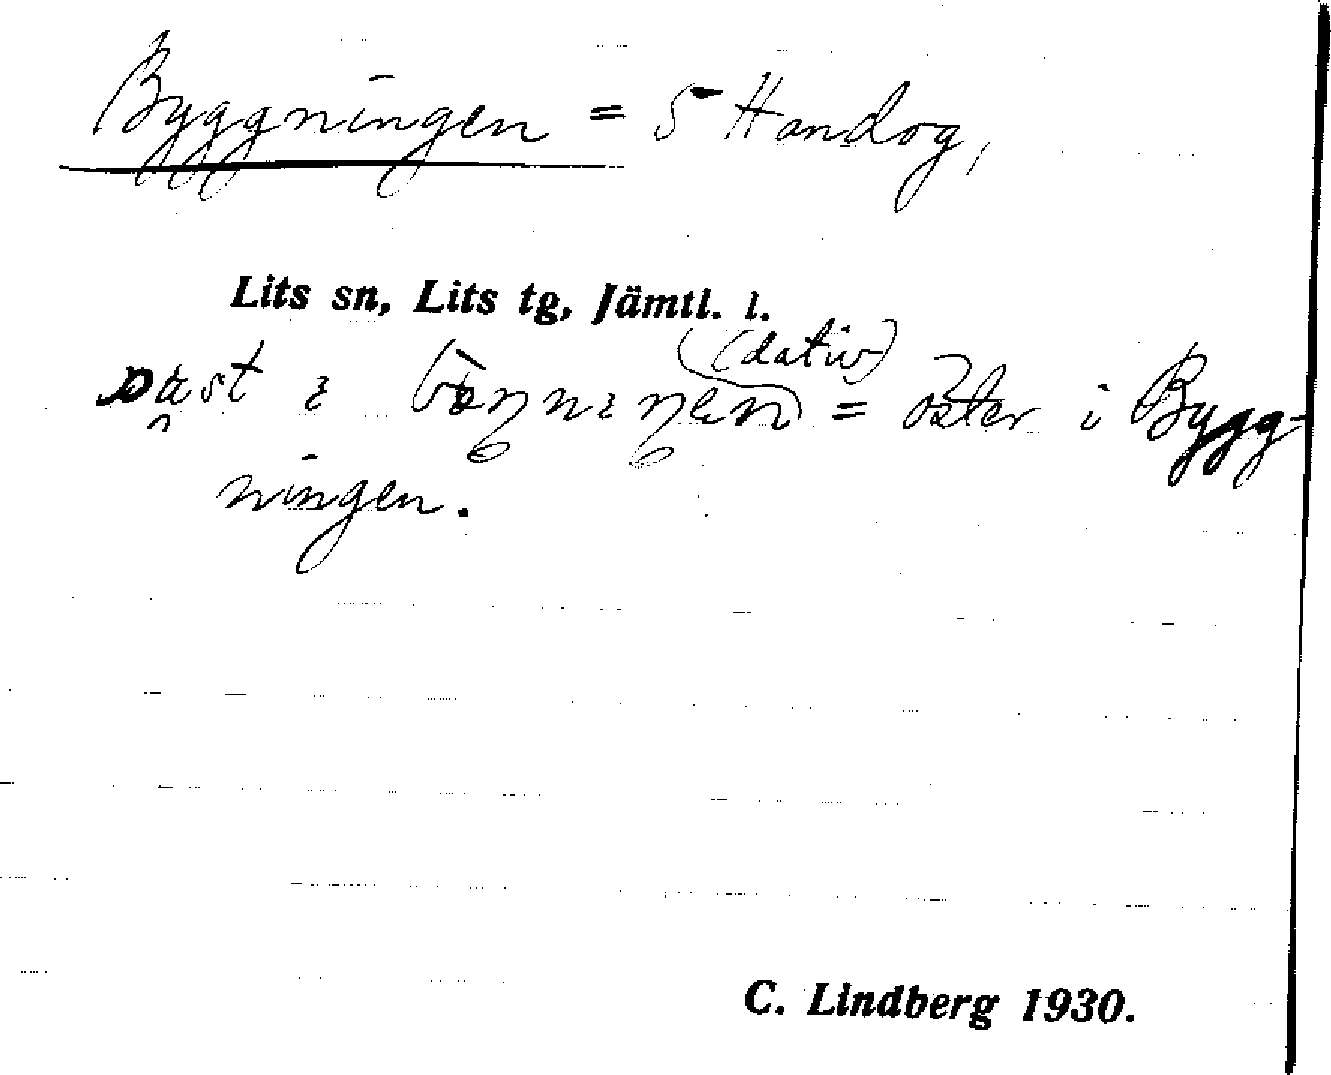 Byggningen = 5 Handog,
Lits sn, Lits tg, Jämtl. l.
(dativ)
= öster i Bygg-
ningen.
C. Lindberg 1930.